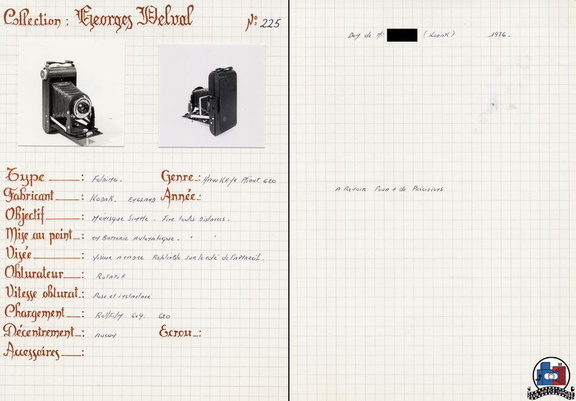 Collection : Georges Delval N°: 225
Type : Folding.
Genre : Hawkeye Model 620
Fabricant : Kodak. England
Année :
Objectif : Ménisque Simple. Fixe toutes distances.
Mise au point :
Visée : Viseur à cadre Repliable sur le côté de l'appareil.
Obturateur : Rotatif
Vitesse obturat : Pose et instantané
Chargement : Rollfilm 6x9. 620
Décentrement : aucun
Ecrou :
Accessoires :
Don de Mr (Kodak) 1976.
A Revoir Pour + de Précisions